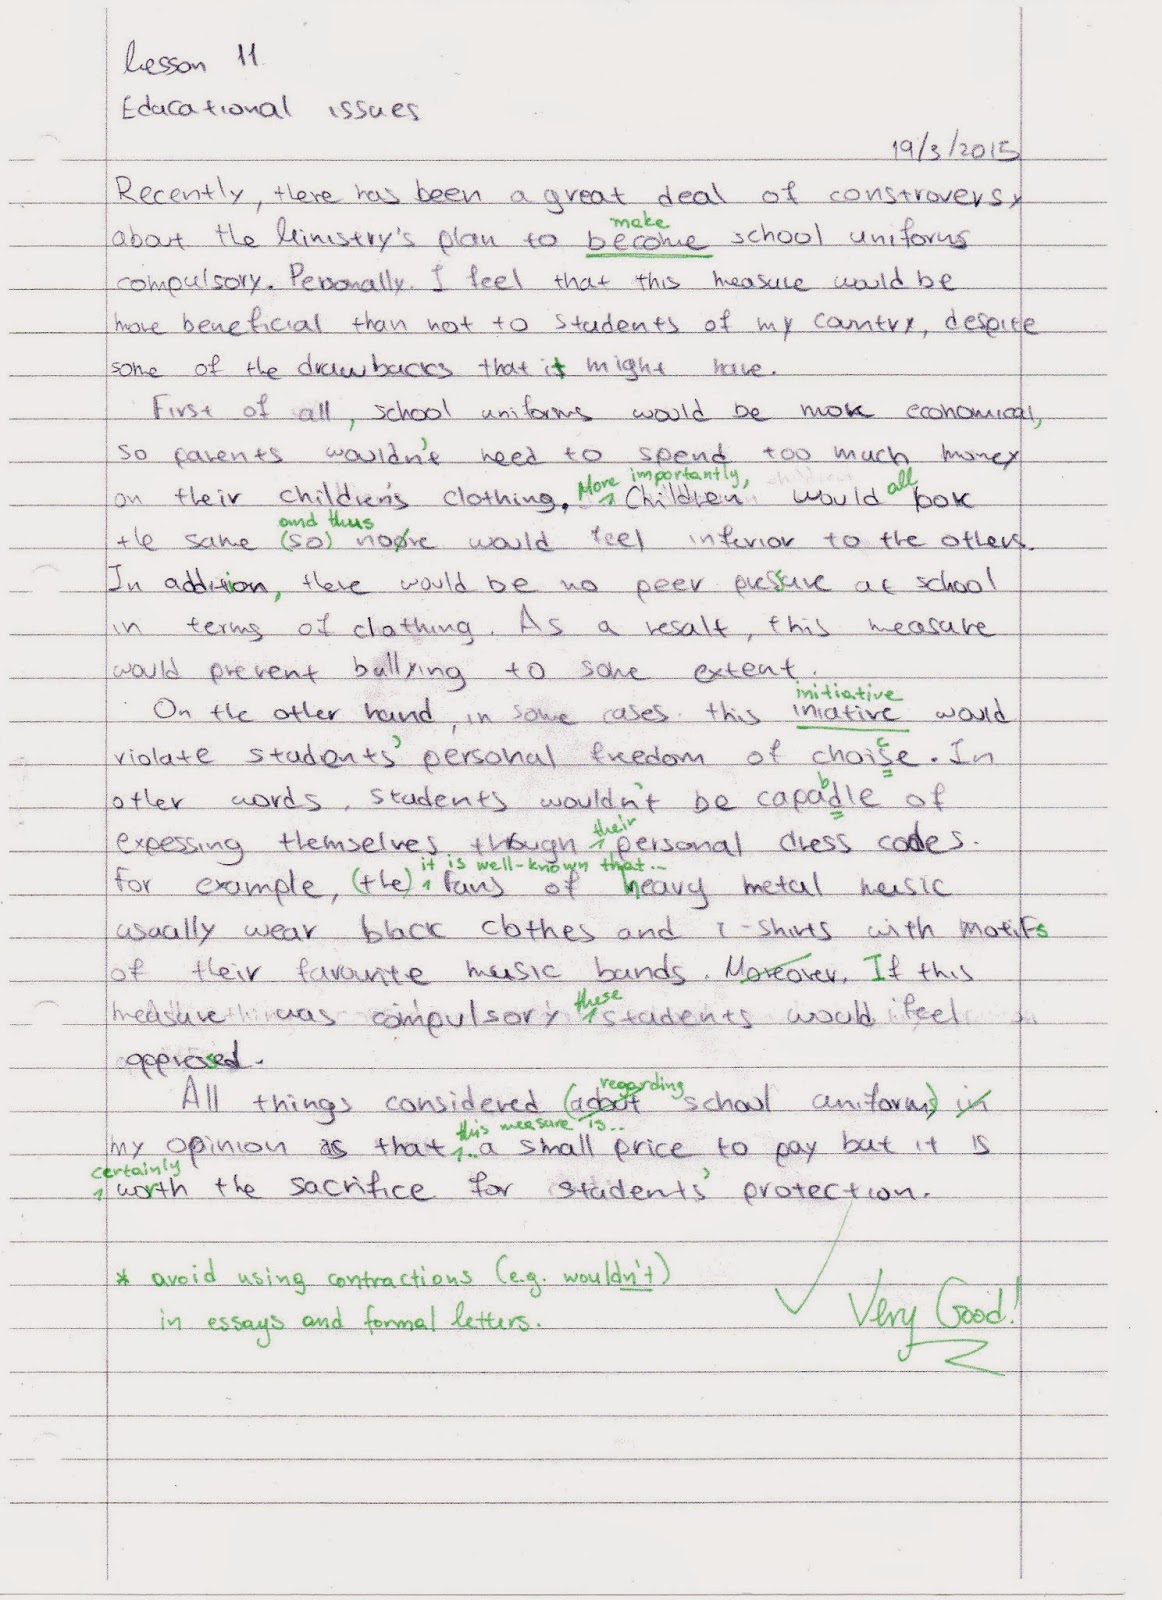 Lesson 11
Educational issues
19/3/2015
Recently, there has been a great deal of constroversy
make
about the Ministry's plan to become school uniforms
compulsory. Personally. I feel that this measure would be
more beneficial than not to students of my country, despite
some of the drawbacks that it might have.
First of all, school uniforms would be more economical,
so parents wouldn't need to spend too much money
More importantly, all
on their children's clothing. Children would look
and thus
the same (so) noone would feel inferior to the others.
In addition, there would be no peer pressure at school
in terms of clothing. As a result, this measure
would prevent bullying to some extent.
initiative
On the other hand, in some cases this iniative would
violate students' personal freedom of choise. In
c
b
other words, students wouldn't be capadle of
their
expessing themselves though personal dress codes.
it is well-known that...
For example, (the) fans of heavy metal music
usually wear black clothes and T-shirts with motifs
of their favourite music bands. Moreover, If this
these
measure was compulsory students would feel
oppressed.
regarding
All things considered (about school uniforms) in
this measure is...
my opinion is that a small price to pay but it is
certainly
worth the sacrifice for students' protection.
* avoid using contractions (e.g. wouldn't)
in essays and formal letters.
Very Good!